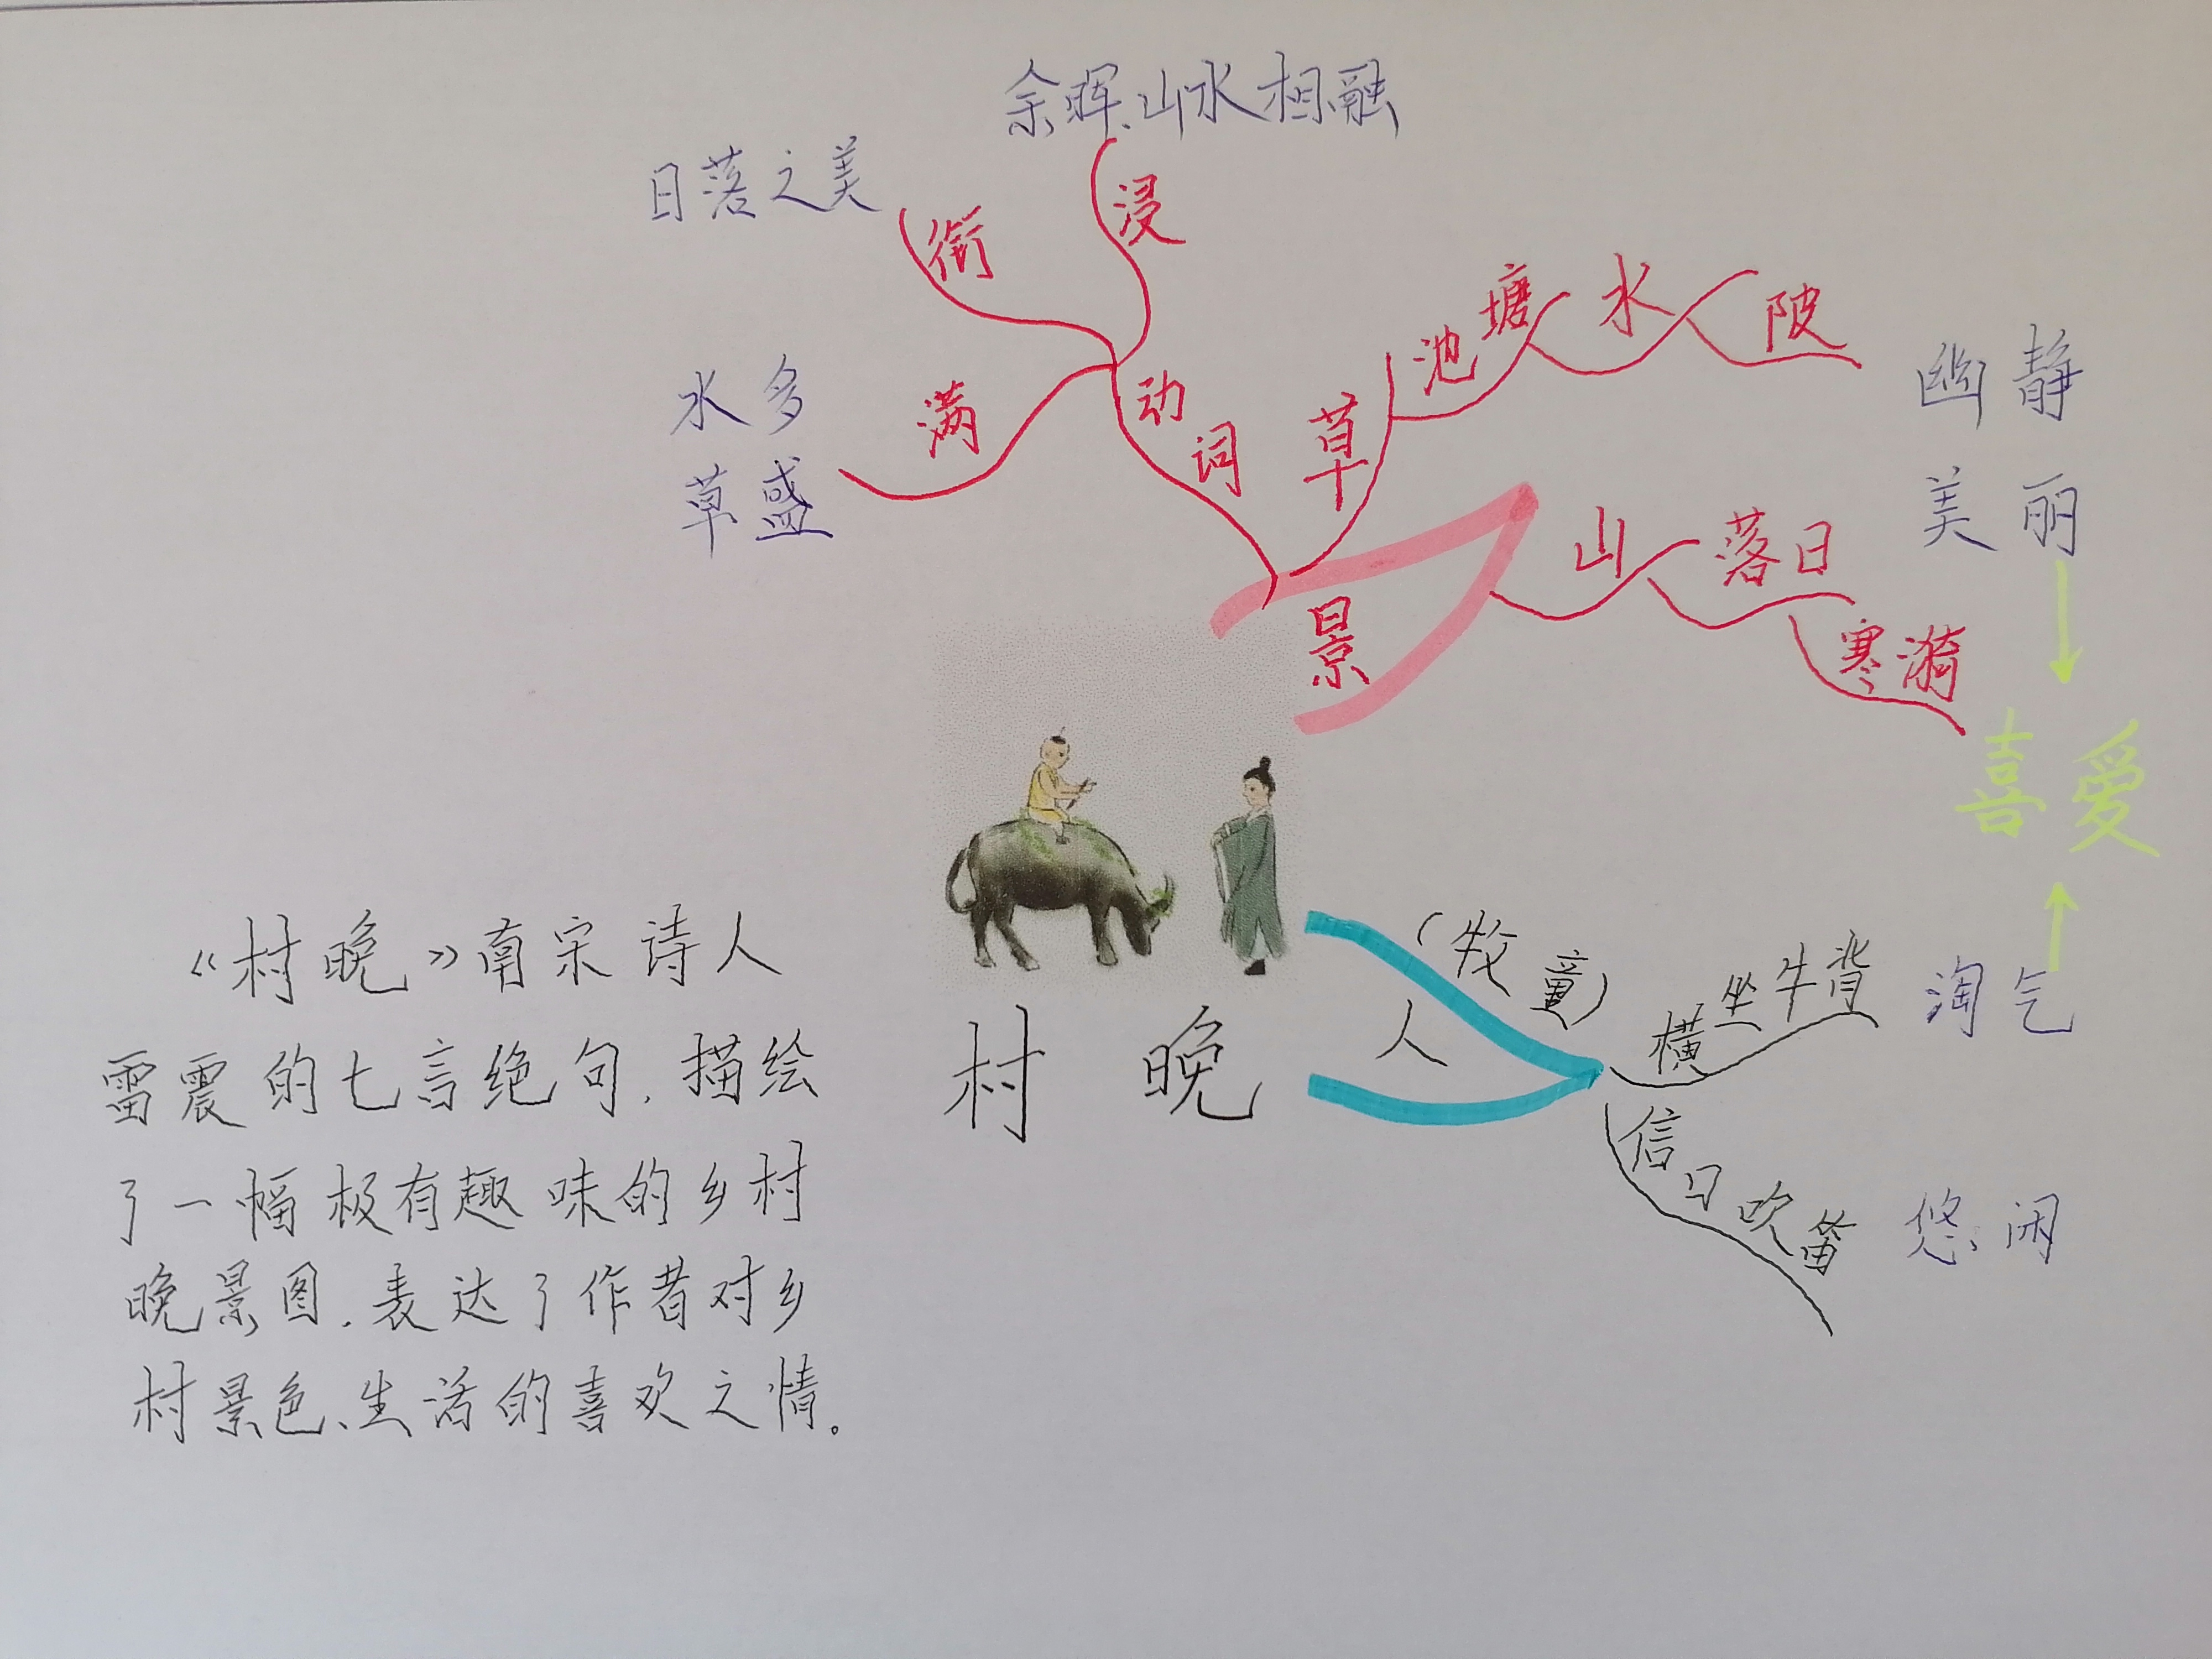 余晖、山水相融
日落之美
衔
浸
水多
草盛
满
动词
草
池塘
水
陂
幽静
美丽
景
山
落日
寒漪
喜爱
村晚
人
(牧童)
横坐牛背
淘气
信口吹笛
悠闲
《村晚》南宋诗人
雷震的七言绝句,描绘
了一幅极有趣味的乡村
晚景图,表达了作者对乡
村景色、生活的喜欢之情。